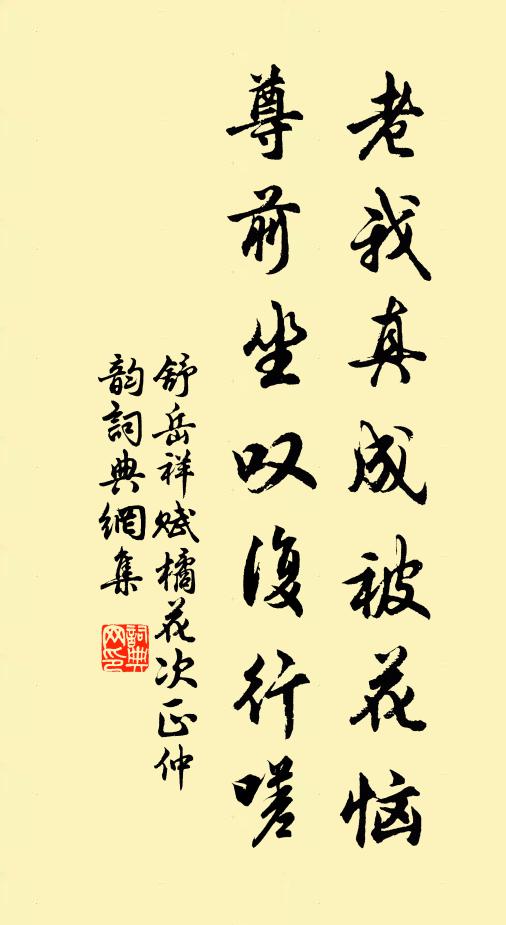 老我真成被花恼
尊前坐叹復行嗟
舒岳祥赋橘花次正仲
韵詞典網集
詞典
网印